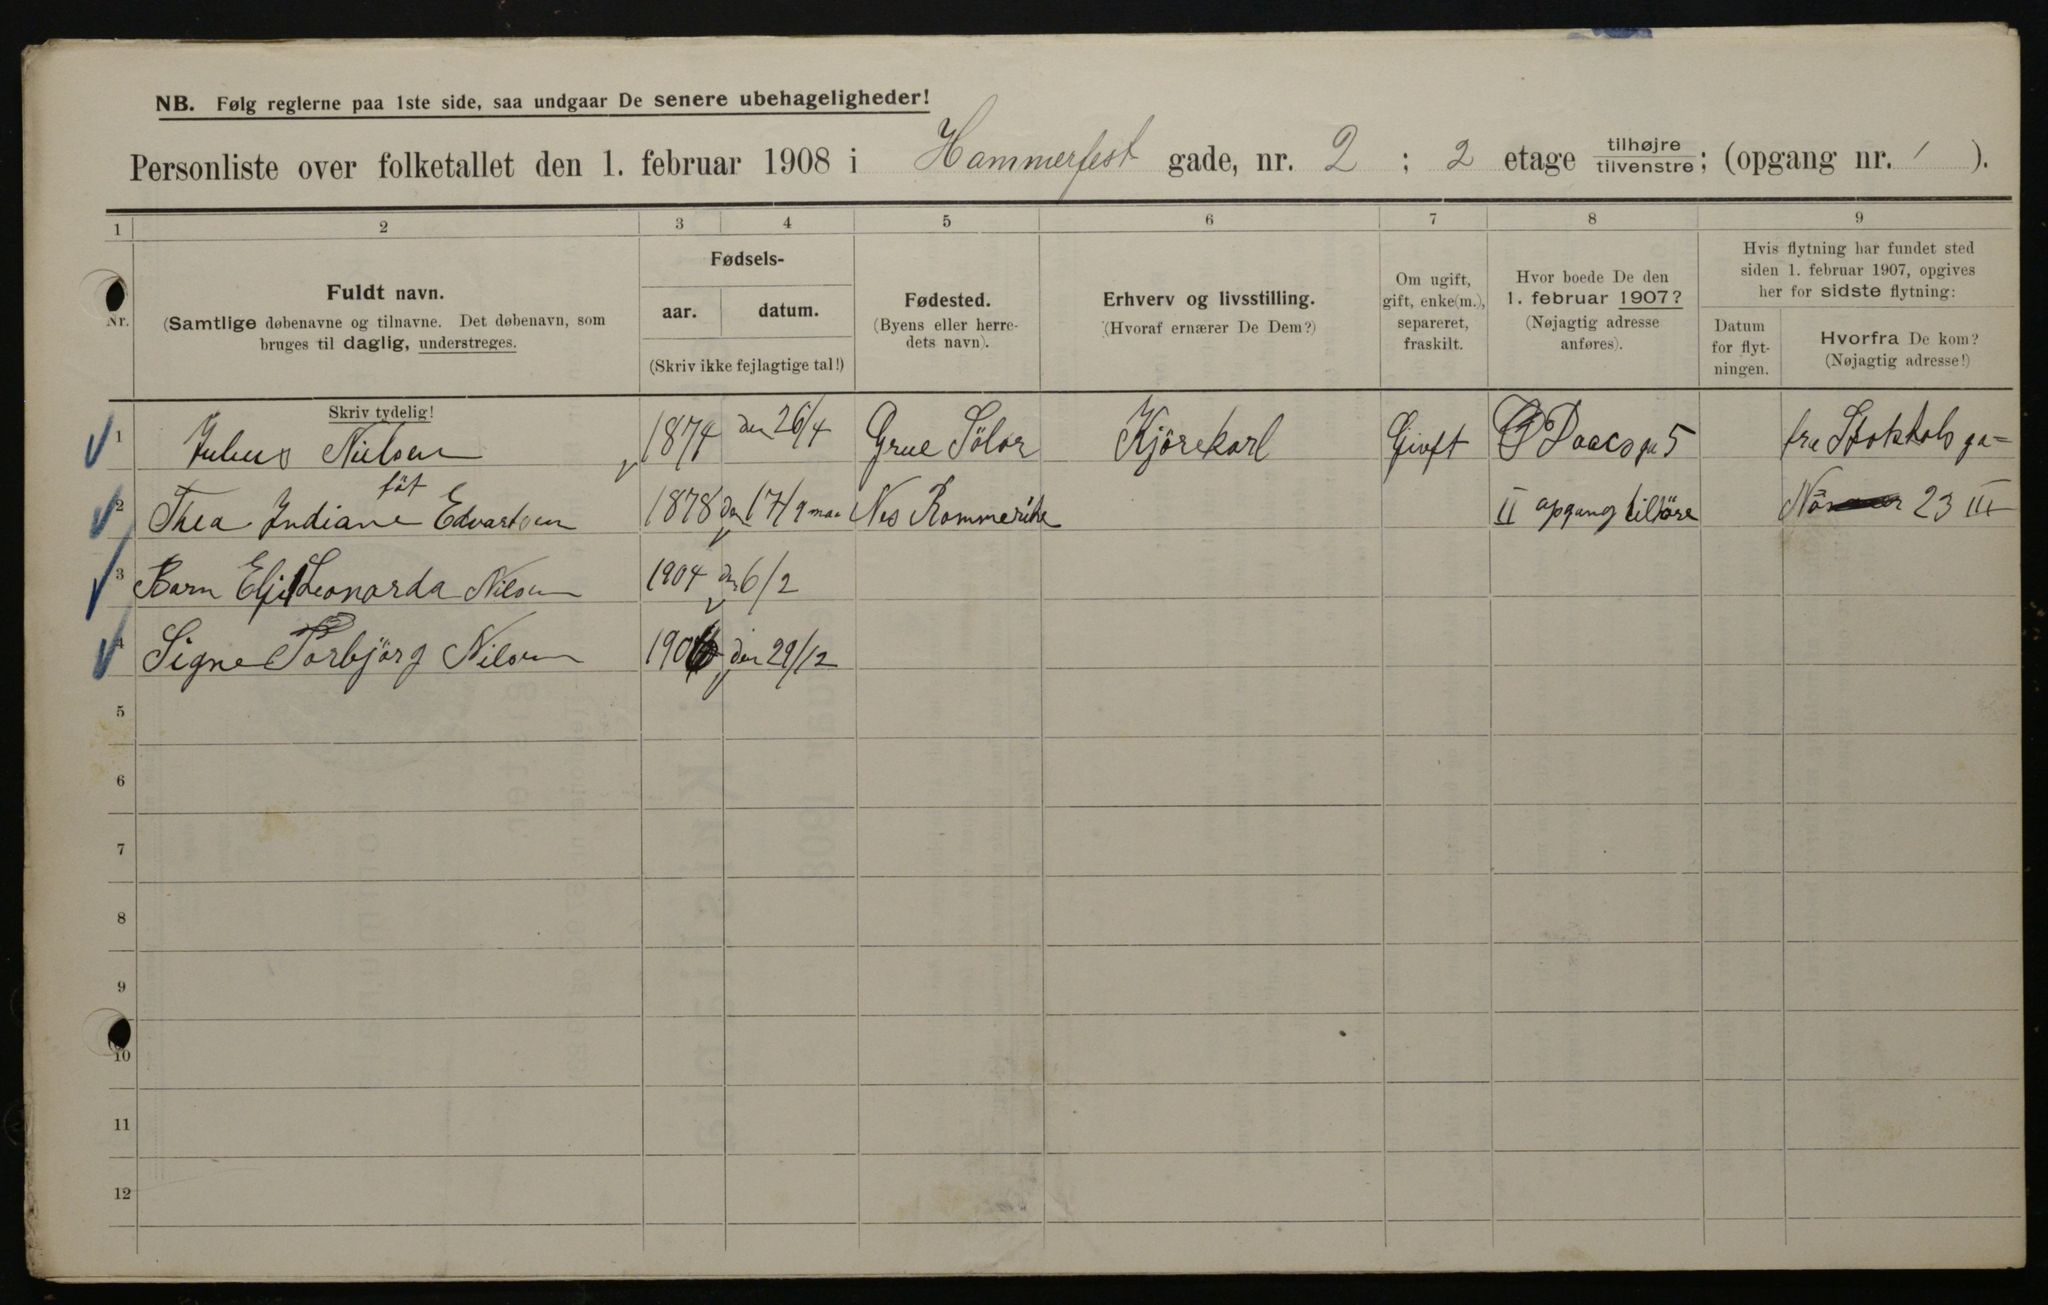 NB. Følg reglerne paa 1ste side, saa undgaar De senere ubehageligheder!
Personliste over folketallet den 1. februar 1908 i Hammerfest gade, nr. 2 ; 2 etage tilhøjre tilvenstre; (opgang nr. 1 ).
1 2 3 4 5 6 7 8 9
Nr.
Fuldt navn.
(Samtlige døbenavne og tilnavne. Det døbenavn, som
bruges til daglig, understreges.
Skriv tydelig!
Fødsels-
aar. datum.
(Skriv ikke fejlagtige tal!)
Fødested.
(Byens eller herre-
dets navn).
Erhverv og livsstilling.
(Hvoraf ernærer De Dem?)
Om ugift,
gift, enke(m.),
separeret,
fraskilt.
Hvor boede De den
1. februar 1907?
(Nøjagtig adresse
anføres).
Hvis flytning har fundet sted
siden 1. februar 1907, opgives
her for sidste flytning:
Datum
for flyt-
ningen.
Hvorfra De kom?
(Nøjagtig adresse!)
1 Julius Nielsen 1874 den 26/4 Grue Sölör Kjörekarl Givft Daaes ga 5 fra Stokhols ga=
föt
2 Thea Indiane Edvartsen 1878 den 17/9 Nes Rommerike II opgang tilhöre 23 III
3 Barn Leonarda Nilsen 1904 den 6/2
4 Signe Torbjörg Nilsen den 29/12
5
6
7
8
9
10
11
12